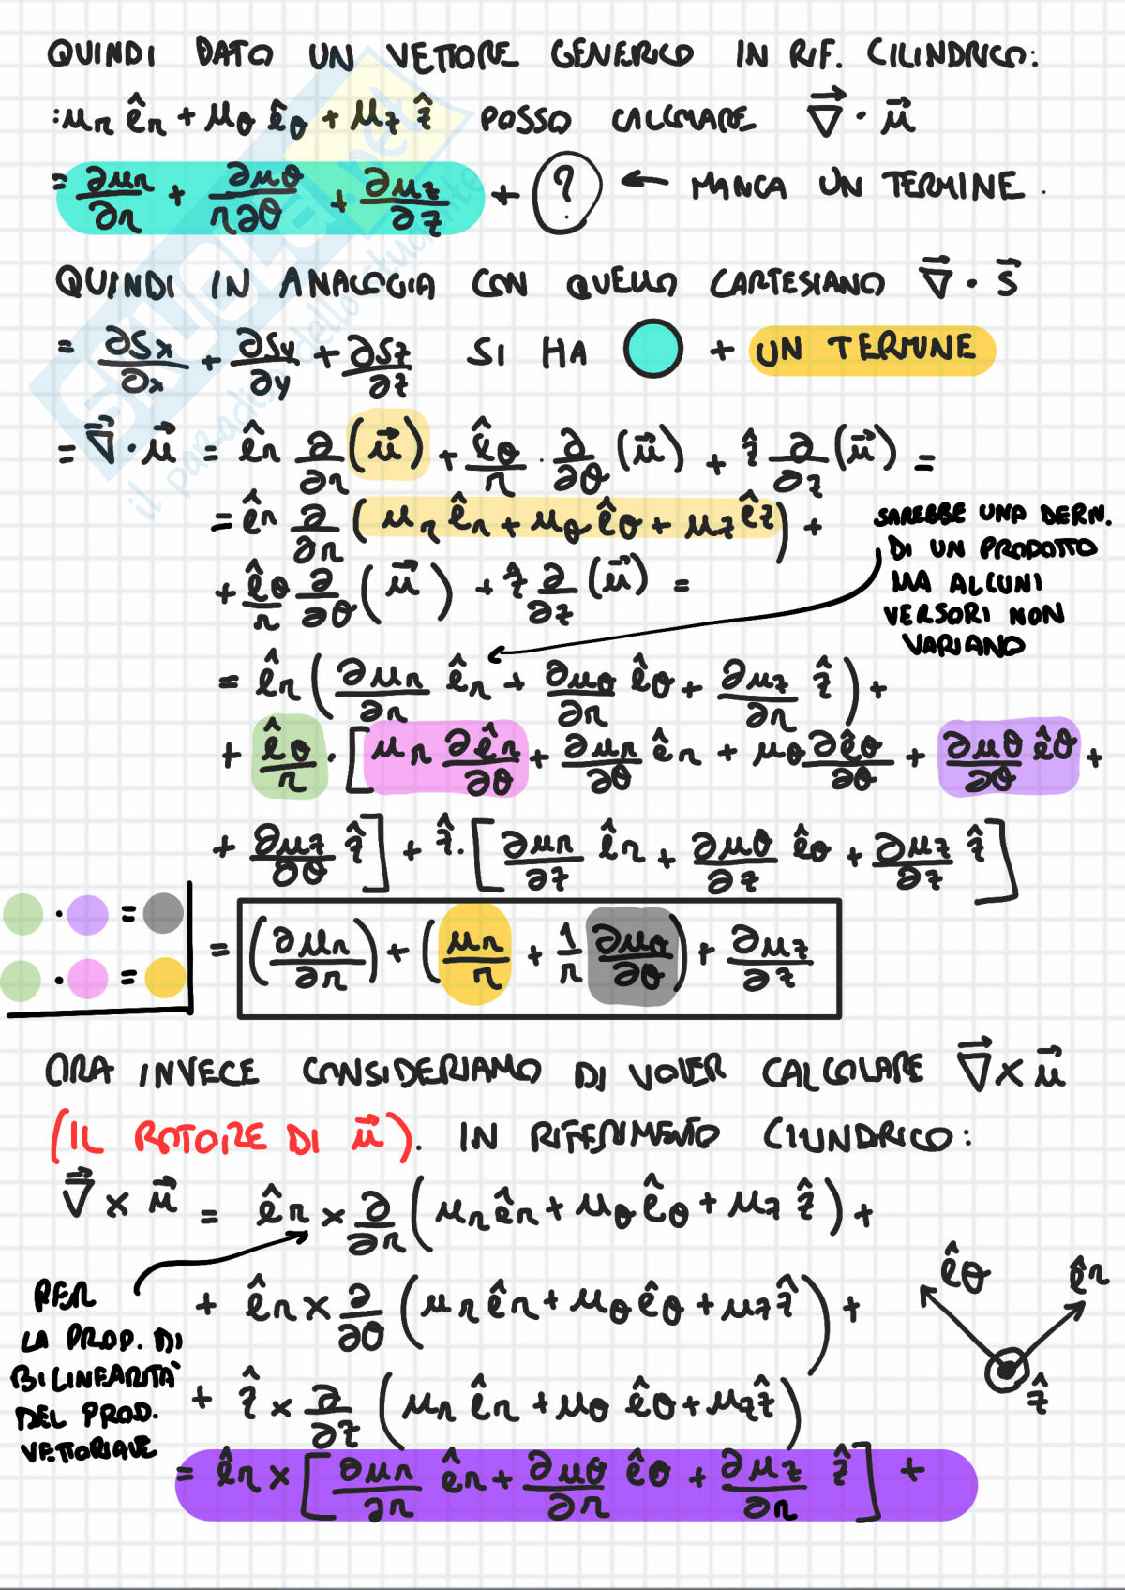 QUINDI DATO UN VETTORE GENERICO IN RIF. CILINDRICO:
: μr êr + μθ êθ + μz ẑ POSSO CALCOLARE ∇⃗ · μ⃗
= ∂μr/∂r + ∂μθ/r∂θ + ∂μz/∂z + ? ← MANCA UN TERMINE.
QUINDI IN ANALOGIA CON QUELLO CARTESIANO ∇⃗ · s⃗
= ∂Sx/∂x + ∂Sy/∂y + ∂Sz/∂z SI HA + UN TERMINE
= ∇⃗ · μ⃗ = êr ∂/∂r (μ⃗) + êθ/r · ∂/∂θ (μ⃗) + ẑ ∂/∂z (μ⃗) =
= êr ∂/∂r (μr êr + μθ êθ + μz êz) +
+ êθ/r ∂/∂θ (μ⃗) + ẑ ∂/∂z (μ⃗) =
SAREBBE UNA DERIV.
DI UN PRODOTTO
MA ALCUNI
VERSORI NON
VARIANO
= êr (∂μr/∂r êr + ∂μθ/∂r êθ + ∂μz/∂r ẑ) +
+ êθ/r · [μr ∂êr/∂θ + ∂μr/∂θ êr + μθ ∂êθ/∂θ + ∂μθ/∂θ êθ +
+ ∂μz/∂θ ẑ] + ẑ · [∂μr/∂z êr + ∂μθ/∂z êθ + ∂μz/∂z ẑ]
· =
· =
= (∂μr/∂r) + (μr/r + 1/r ∂μθ/∂θ) + ∂μz/∂z
ORA INVECE CONSIDERIAMO DI VOLER CALCOLARE ∇⃗ × μ⃗
(IL ROTORE DI μ⃗). IN RIFERIMENTO CILINDRICO:
∇⃗ × μ⃗ = êr × ∂/∂r (μr êr + μθ êθ + μz ẑ) +
+ êr × ∂/∂θ (μr êr + μθ êθ + μz ẑ) +
+ ẑ × ∂/∂z (μr êr + μθ êθ + μz ẑ)
PER
LA PROP. DI
BILINEARITÀ
DEL PROD.
VETTORIALE
êθ êr
ẑ
= êr × [∂μr/∂r êr + ∂μθ/∂r êθ + ∂μz/∂r ẑ] +